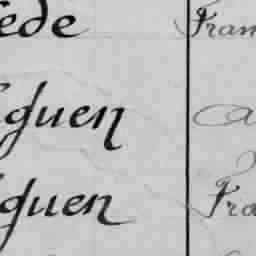 ède Fran
guen a
guen Fra